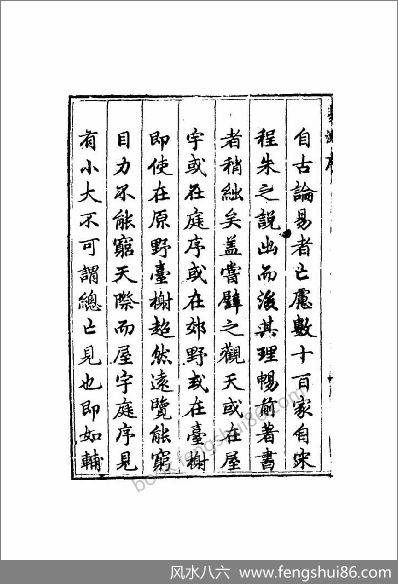 自古論易者亡慮數十百家自宋
程朱之說出而後其理暢前著書
者稍絀矣蓋嘗譬之觀天或在屋
宇或在庭序或在郊野或在臺榭
即使在原野臺榭超然遠覽能窮
目力不能窮天際而屋宇庭序見
有小大不可謂總亡見也即如輔
book.fengshui86.com
风水八六 www.fengshui86.com